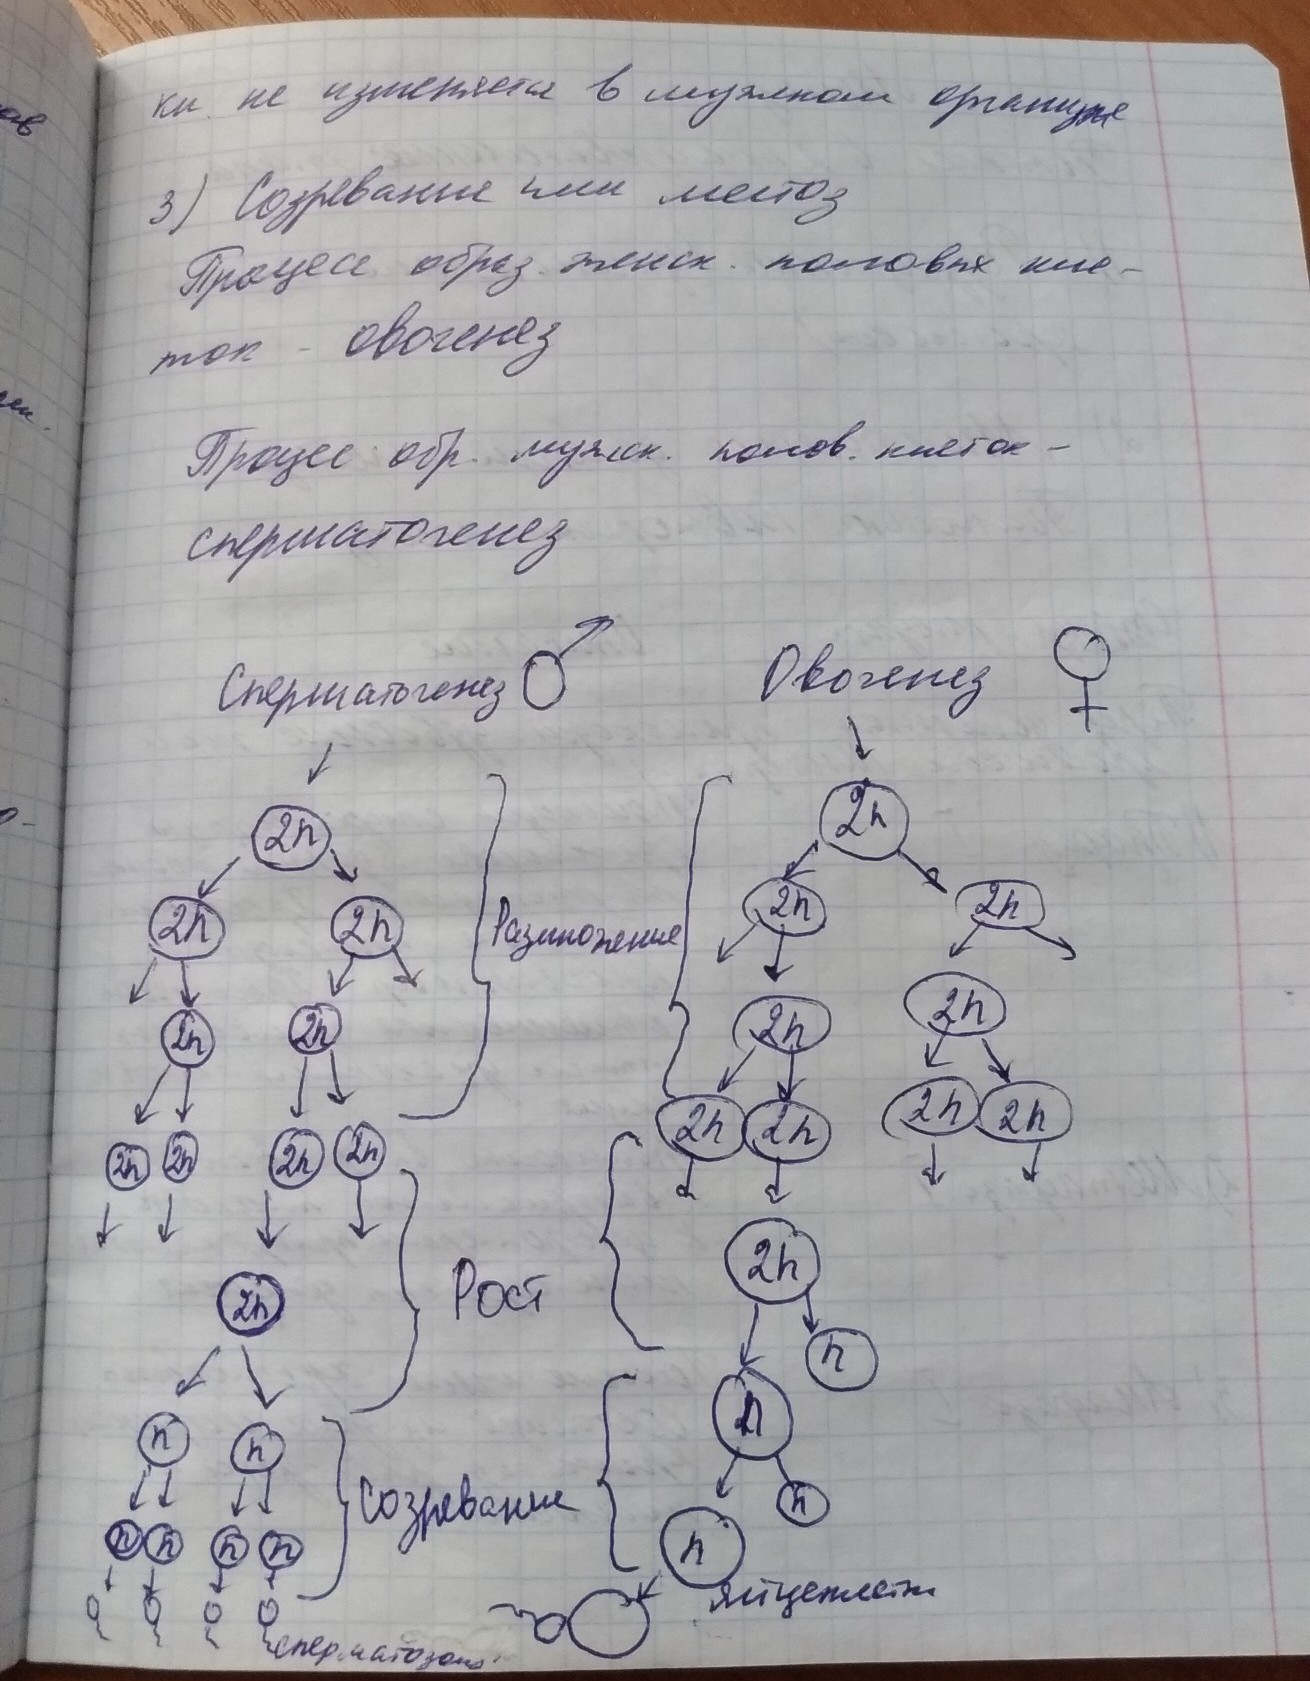 ки не изменяется в мужском организме
3) Созревание или мейоз
Процесс образ. женск. половых кле-
ток - овогенез
Процес обр. мужск. полов. клеток -
сперматогенез
Сперматогенез ♂ Овогенез ♀
2n 2n
2n 2n Размножение 2n 2n
2n 2n 2n 2n
2n 2n 2n 2n 2n 2n 2n 2n
2n Рост 2n
n
n n n
n n n n Созревание n n
яйцеклетка
сперматозоид